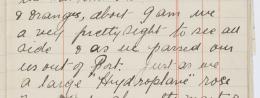 & oranges, about 9 am we
a very pretty sight to see all
side & as we passed our
us out of Port. Just as we
a large "Hydroplane" rose